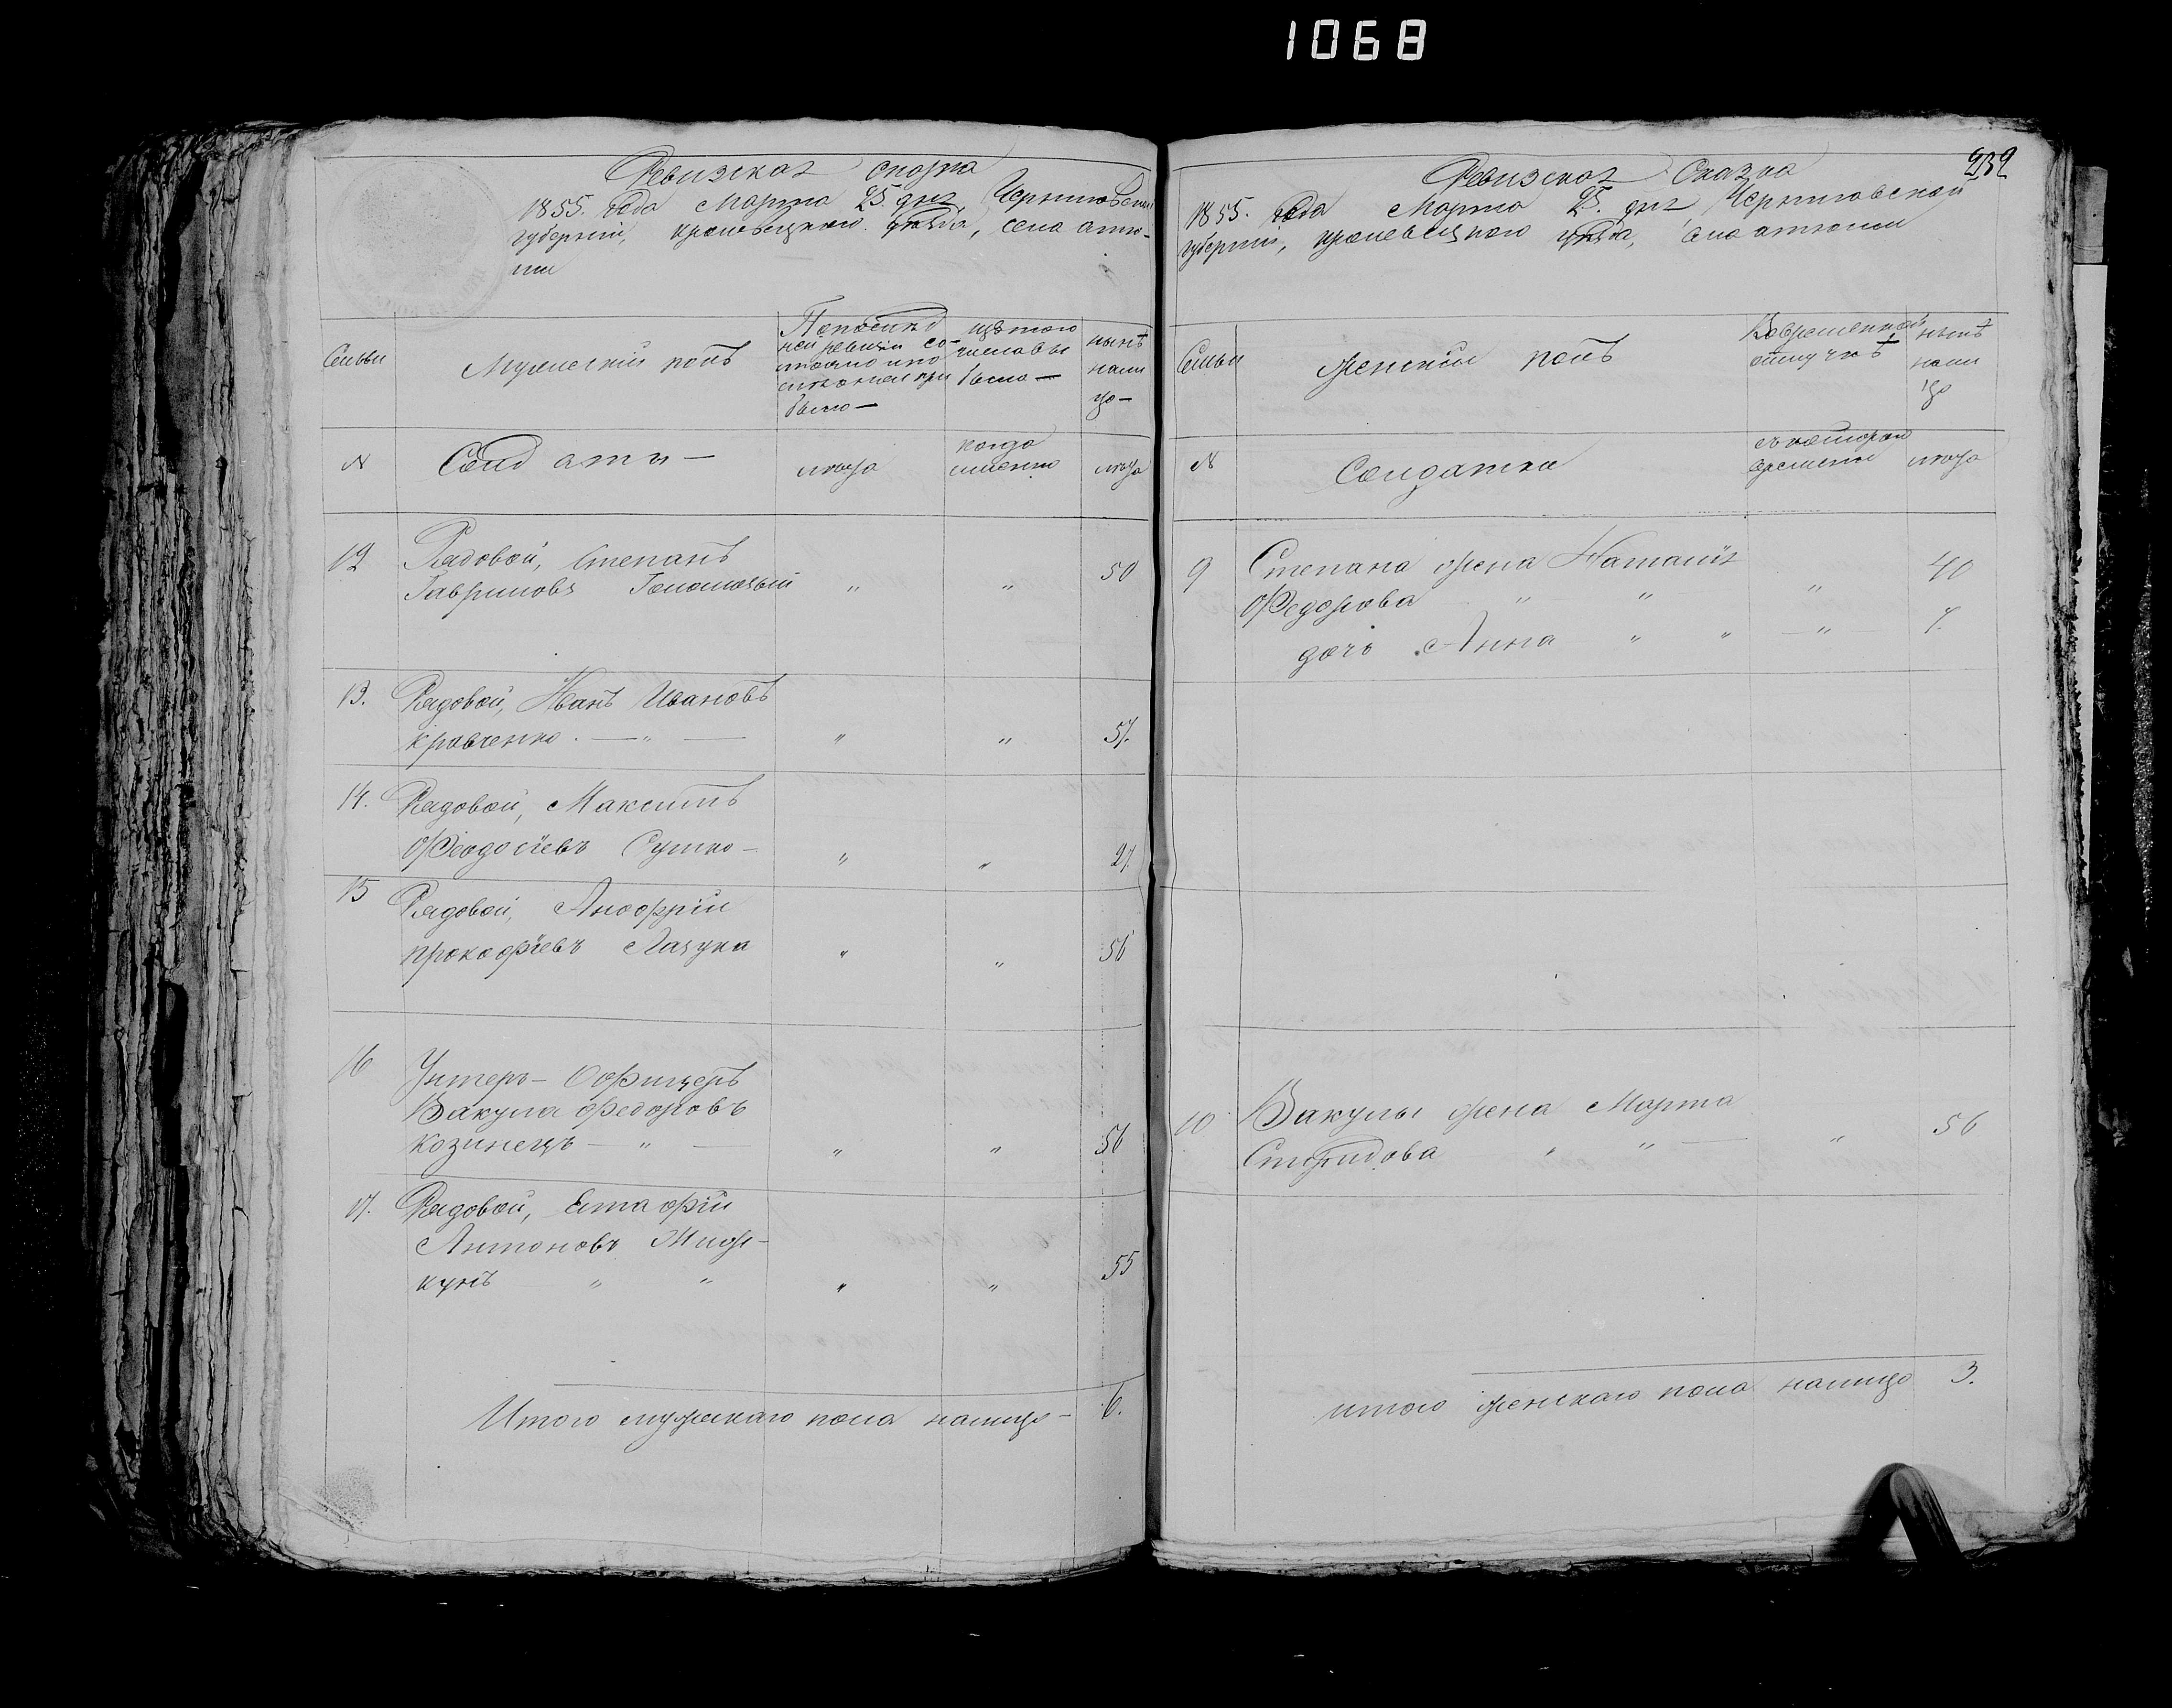 1068
Ревизская скозка
1855. года Марта 25 дня, Черниговской
губерніи, кролевецкаго уѣзда, села атю-
ши
Семьи
Мужескій полъ
По послѣд
ней ревизіи со-
стояло и по
слѣ оной при
было —
изъ того
числа вы
было —
нынѣ
нали
цо —
№
Солдаты —
лѣта
когда
именно
лѣта
12
Рядовой, Степанъ
Гавриловъ Голошовый " " 50
13. Рядовой, Иванъ Ивановъ
кравченко. — " — " " 57.
14. Рядовой, Максимъ
Феодосіевъ Сушко — " " 27.
15 Рядовой, Анофрій
прокофіевъ Лацука " " 56
16 Унтеръ - Оофицеръ
Вакула федоровъ
козинецъ — " — " " 56
17. Рядовой, Евстафій
Антоновъ
кунъ " " " " 55
Итого мужскаго пола налицо — 6.
239
Ревизская Сказка
1855. года Марта 25. дня Черниговской
губерніи, кролевецкаго уѣзда, села атюши
Семьи
женскій полъ
Во временной
отлучкѣ
нынѣ
нали
цо
№
Солдатки
съ которого
времени
лѣта
9 Степана жена Наталія 40
Федорова " " "
дочь Анна " " — " — 7.
10 Вакулы жена Марта
Спиридова " " — " 56
итого женскаго пола налицо 3.